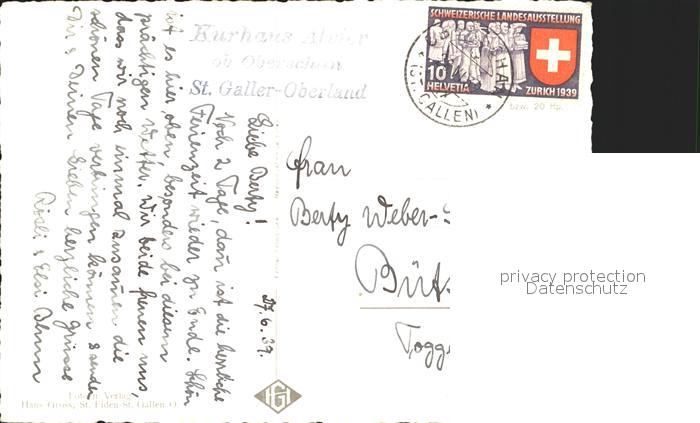 Kurhaus Alvier
ob Oberschan
St. Galler-Oberland
SCHWEIZERISCHE LANDESAUSSTELLUNG
10
HELVETIA
ZÜRICH 1939
(ST. GALLEN)
bzw. 20 Rp.
27.6.39.
Liebe Berty!
Noch 2 Tage, dann ist die herrliche
Ferienzeit wieder zu Ende. Schön
ist es hier oben, besonders bei diesem
prächtigen Wetter. Wir beide freuen uns
dass wir noch einmal zusammen die
schönen Tage verbringen können & senden
Dir & Deinen Lieben herzliche Grüsse
Rösli & Elsi
Frau
Berty Weber-
Büt
Togg
privacy protection
Datenschutz
Foto u. Verlag
Hans Gross, St. Fiden-St. Gallen O.
HG